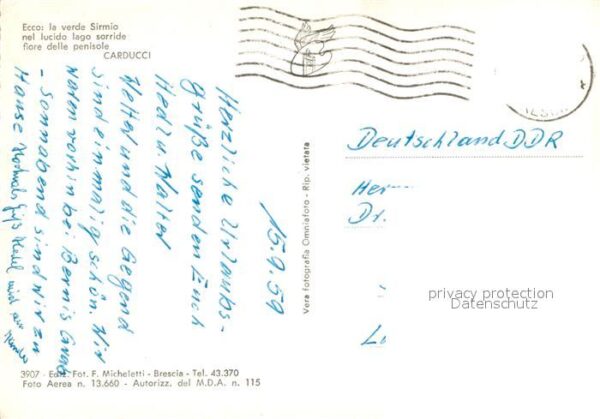 Ecco: la verde Sirmio
nel lucido lago sorride
fiore delle penisole
CARDUCCI
15.9.59
Herzliche Urlaubs-
grüße senden Euch
Hedl u. Walter
Wetter und die Gegend
sind einmalig schön. Wir
waren vorhin bei Bernis
- Sonnabend sind wir zu
Hause
Vera fotografia Omniafoto - Rip. vietata
Deutschland DDR
Herr
Dr.
privacy protection
Datenschutz
3907 - Ediz. Fot. F. Micheletti - Brescia - Tel. 43.370
Foto Aerea n. 13.660 - Autorizz. del M.D.A. n. 115